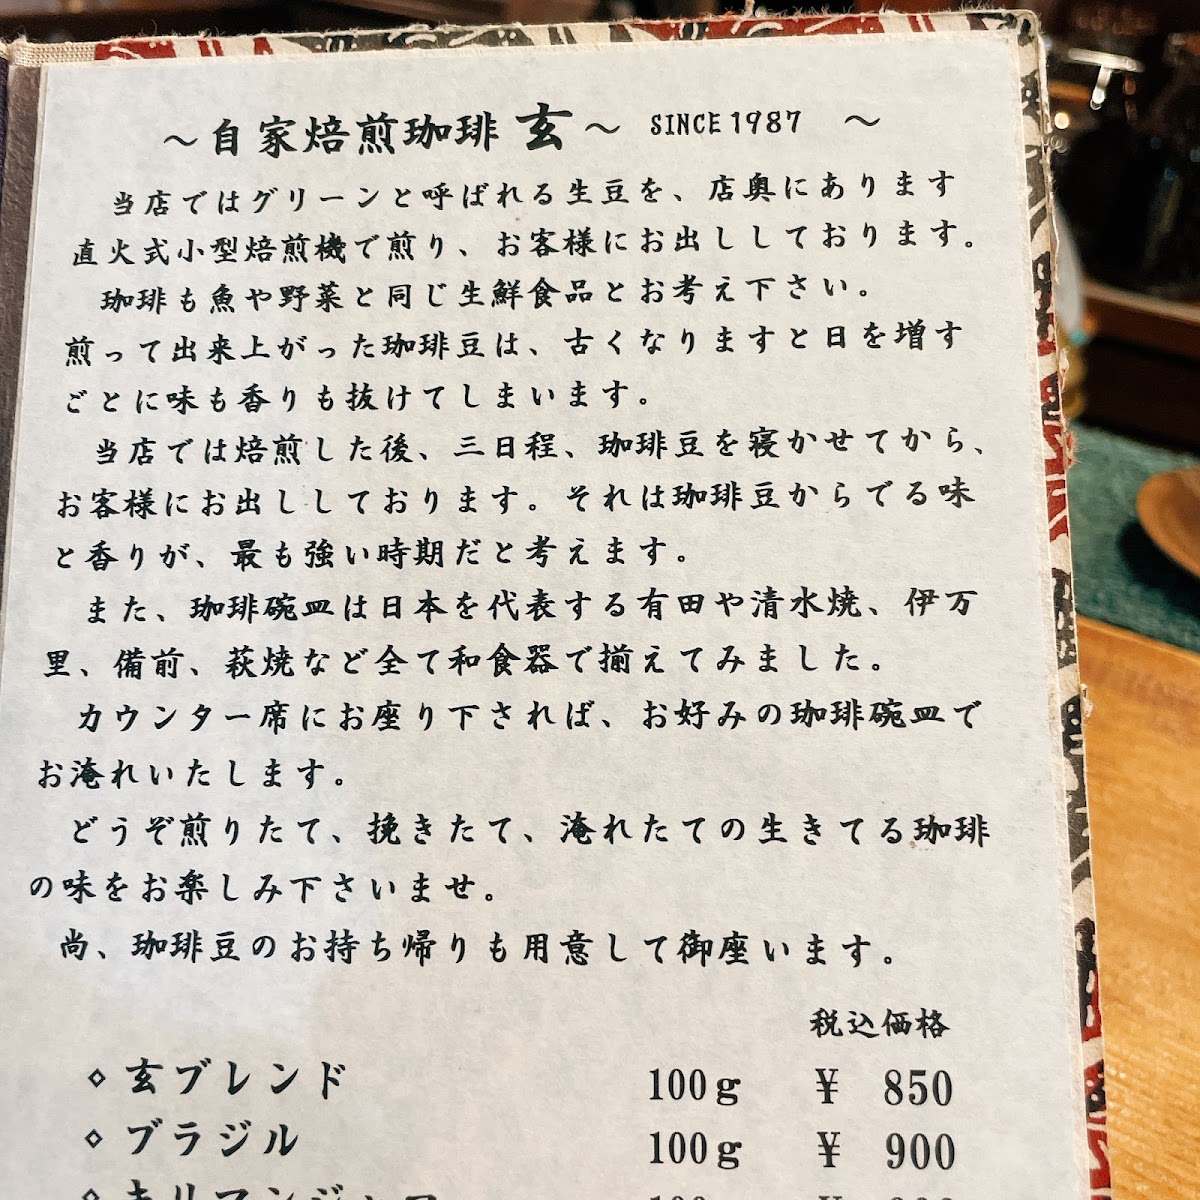 ～自家焙煎珈琲 玄～ SINCE1987 ～
当店ではグリーンと呼ばれる生豆を、店奥にあります
直火式小型焙煎機で煎り、お客様にお出ししております。
珈琲も魚や野菜と同じ生鮮食品とお考え下さい。
煎って出来上がった珈琲豆は、古くなりますと日を増す
ごとに味も香りも抜けてしまいます。
当店では焙煎した後、三日程、珈琲豆を寝かせてから、
お客様にお出ししております。それは珈琲豆からでる味
と香りが、最も強い時期だと考えます。
また、珈琲碗皿は日本を代表する有田や清水焼、伊万
里、備前、萩焼など全て和食器で揃えてみました。
カウンター席にお座り下されば、お好みの珈琲碗皿で
お淹れいたします。
どうぞ煎りたて、挽きたて、淹れたての生きてる珈琲
の味をお楽しみ下さいませ。
尚、珈琲豆のお持ち帰りも用意して御座います。
税込価格
◇玄ブレンド 100g ¥ 850
◇ブラジル 100g ¥ 900
◇キリマンジャロ